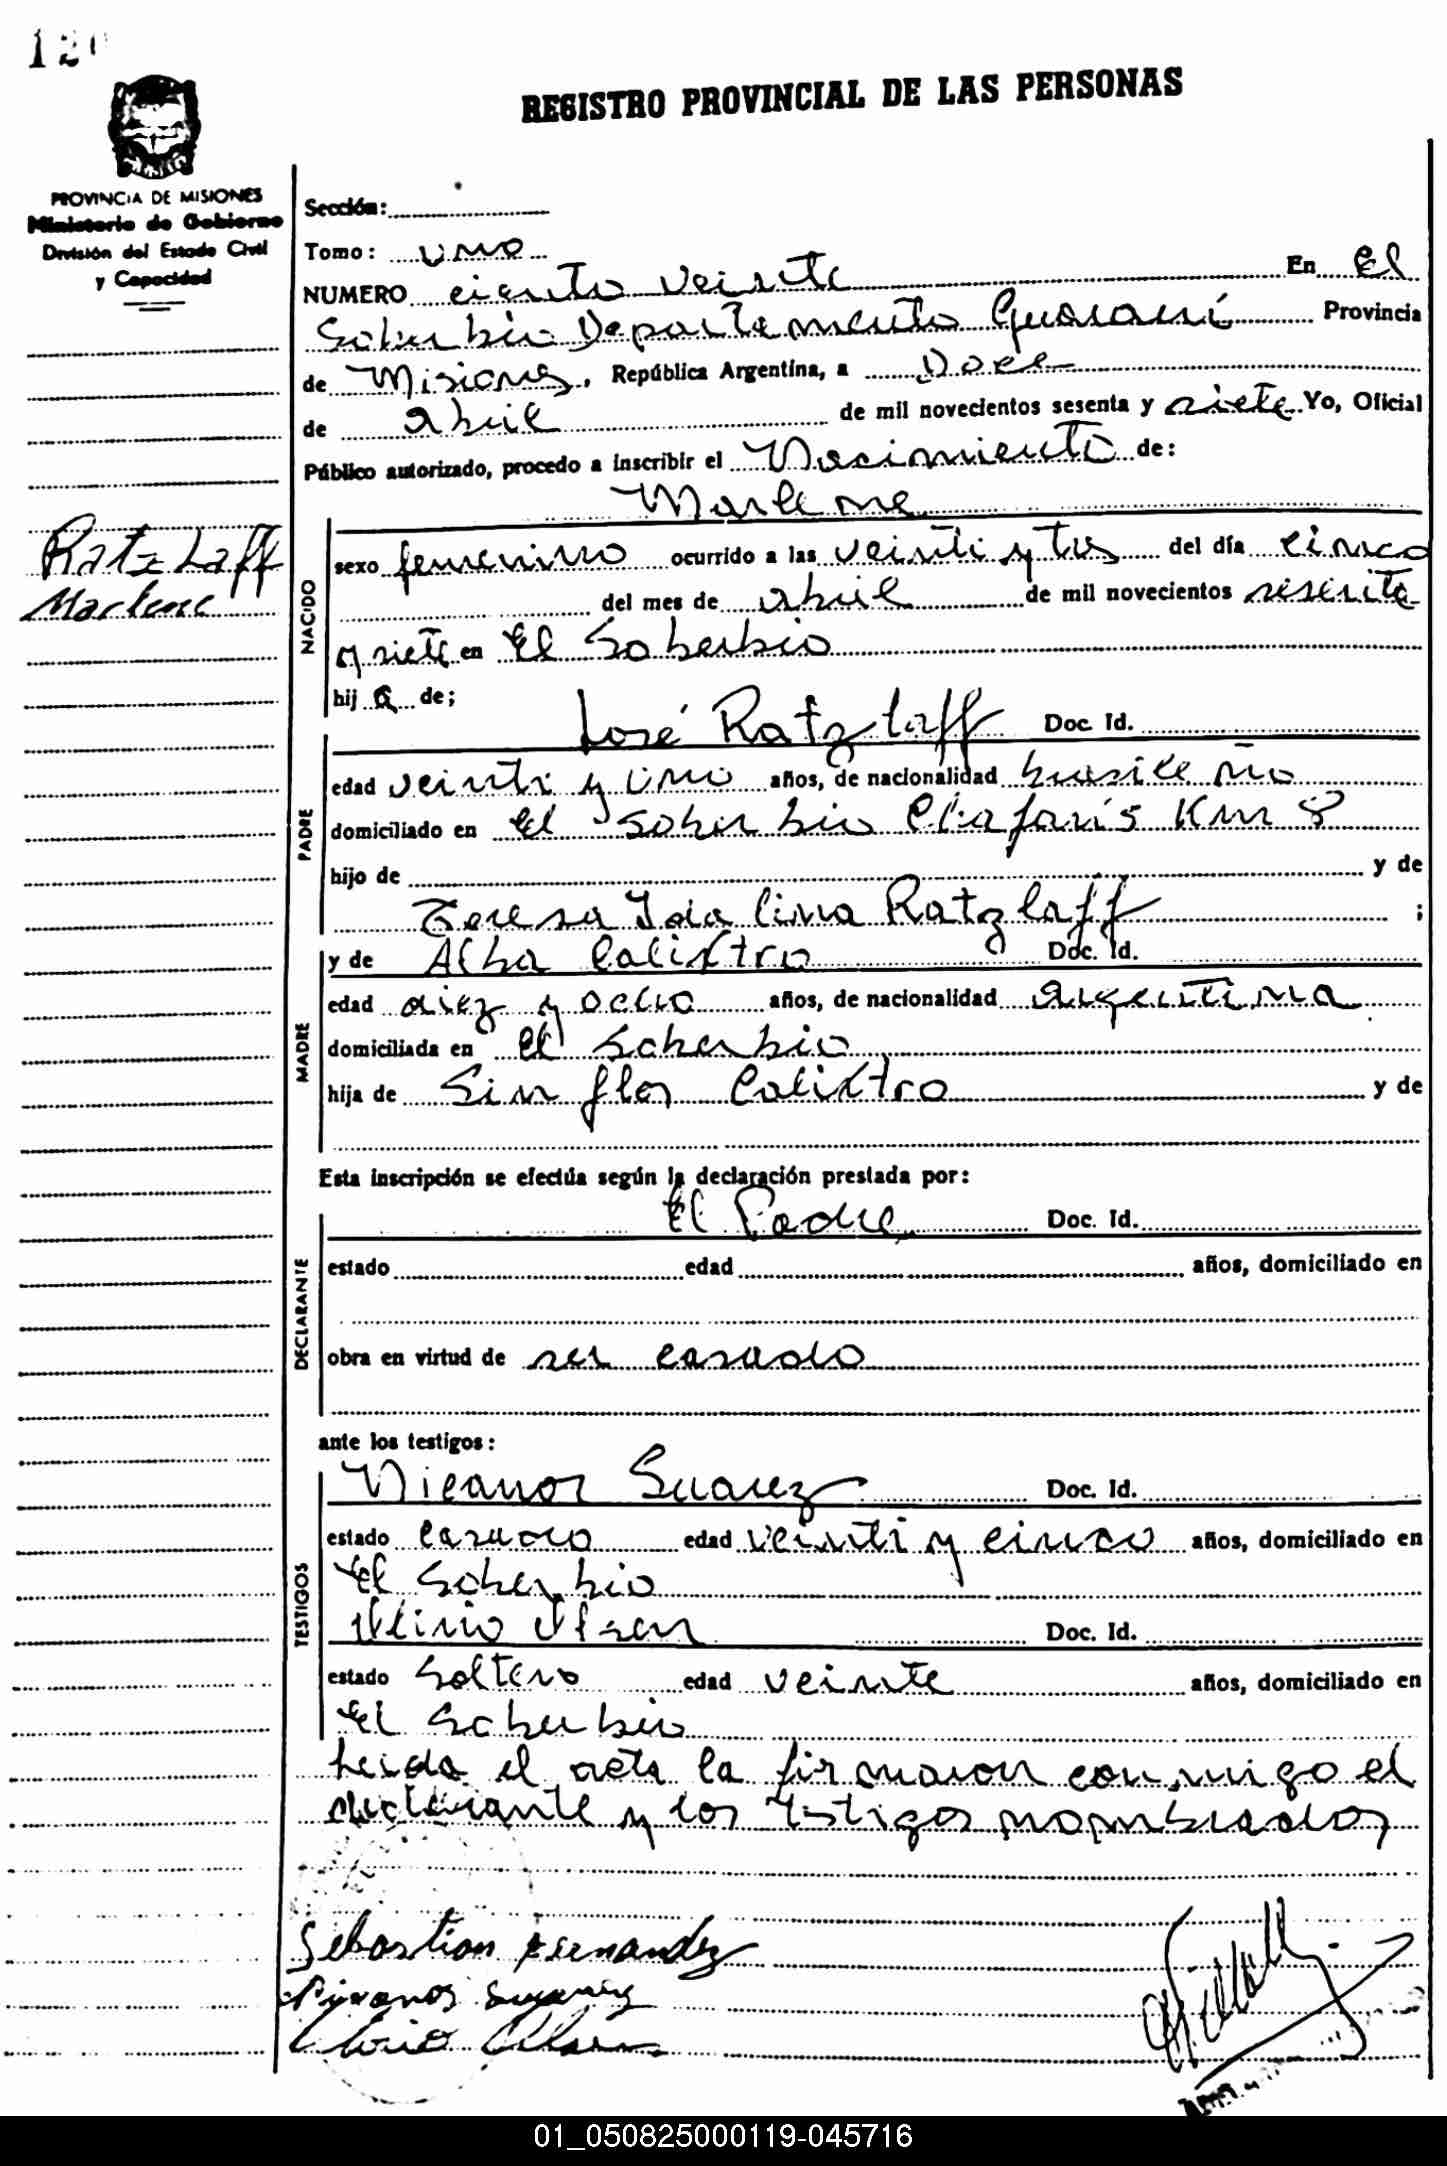 120
REGISTRO PROVINCIAL DE LAS PERSONAS
PROVINCIA DE MISIONES
Ministerio de Gobierno
División del Estado Civil
y Capacidad
Sección:
Tomo: uno
NUMERO ciento veinte En El
Soberbio Departamento Guaraní Provincia
de Misiones, República Argentina, a Doce
de abril de mil novecientos sesenta y siete Yo, Oficial
Público autorizado, procedo a inscribir el Nacimiento de:
Marlene
Ratzlaff
Marlene
NACIDO
sexo femenino ocurrido a las veinti y tres del día cinco
del mes de abril de mil novecientos sesenta
y siete en El Soberbio
hija de;
PADRE
José Ratzlaff Doc. Id.
edad veinti y uno años, de nacionalidad brasileño
domiciliado en El Soberbio Chafaris Km 8
hijo de y de
Teresa Idalina Ratzlaff ;
MADRE
y de Alba Calixtro Doc. Id.
edad diez y ocho años, de nacionalidad argentina
domiciliada en El Soberbio
hija de Sinflor Calixtro y de
Esta inscripción se efectúa según la declaración prestada por:
DECLARANTE
El Padre Doc. Id.
estado edad años, domiciliado en
obra en virtud de ser casado
ante los testigos:
TESTIGOS
Nicanor Suarez Doc. Id.
estado casado edad veinti y cinco años, domiciliado en
El Soberbio
Doc. Id.
estado Soltero edad veinte años, domiciliado en
El Soberbio
Leida el acta la firmaron conmigo el
declarante y los testigos nombrados
Sebastian Fernandez
Suarez
01_050825000119-045716